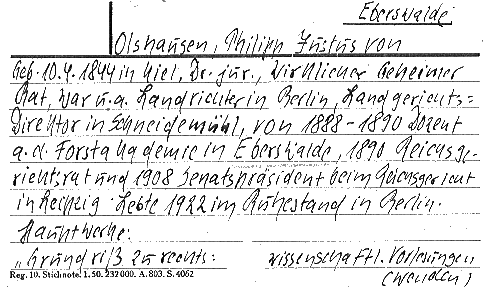 Eberswalde
Olshausen, Philipp Justus von
Geb. 10.4.1844 in Kiel, Dr. jur., Wirklicher Geheimer
Rat, war u.a. Landrichter in Berlin, Landgerichts=
Direktor in Schneidemühl, von 1888-1890 Dozent
a.d. Forstakademie in Eberswalde, 1890 Reichsge-
richtsrat und 1908 Senatspräsident beim Reichsgericht
in Leipzig. Lebte 1922 im Ruhestand in Berlin.
Hauptwerke:
"Grundriß zu rechts: wissenschaftl. Vorlesungen
Reg. 10. Stichnote. 1. 50. 232000. A. 803. S. 4062 (wenden)